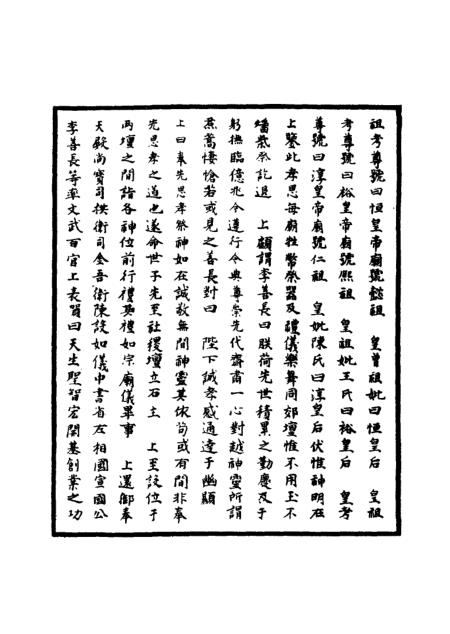 祖考尊號曰恒皇帝廟號懿祖　皇曾祖妣曰恒皇后　皇祖
考尊號曰裕皇帝廟號熙祖　皇祖妣王氏曰裕皇后　皇考
尊號曰淳皇帝廟號仁祖　皇妣陳氏曰淳皇后伏惟神明在
上鑒此孝思每廟牲幣祭器及禮儀樂舞同郊壇惟不用玉不
燔柴祭訖退　上顧謂李善長曰朕荷先世積累之勤慶及于
躬撫臨億兆今遵行令典尊崇先代齋肅一心對越神靈所謂
焄蒿悽愴若或見之善長對曰　陛下誠孝感通達于幽顯
上曰奉先思孝祭神如在誠敬無間神靈其依苟或有間非奉
先思孝之道也遂命世子先至社稷壇立石主　上至設位于
兩壇之間詣各神位前行禮其禮如宗廟儀畢事　上還御奉
天殿尚寶司拱衛司金吾衛陳設如儀中書省左相國宣國公
李善長等率文武百官上表賀曰天生聖智宏開基創業之功